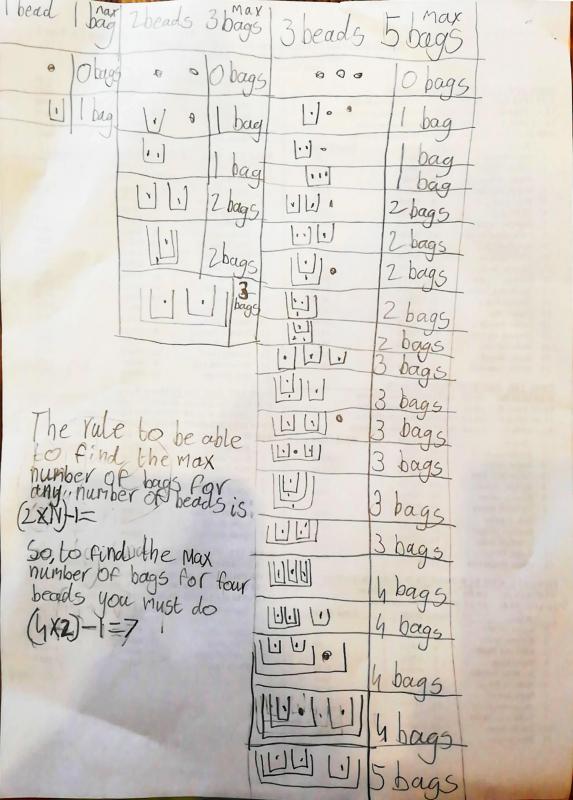 1 bead 1 max bag
0 bags
1 bag
2 beads 3 max bags
0 bags
1 bag
1 bag
2 bags
2 bags
3 bags
3 beads 5 max bags
0 bags
1 bag
1 bag
1 bag
2 bags
2 bags
2 bags
2 bags
2 bags
3 bags
3 bags
3 bags
3 bags
3 bags
3 bags
4 bags
4 bags
4 bags
4 bags
5 bags
The rule to be able
to find the max
number of bags for
any number of beads is
(2×N)-1=
So, to find the max
number of bags for four
beads you must do
(4×2)-1=7